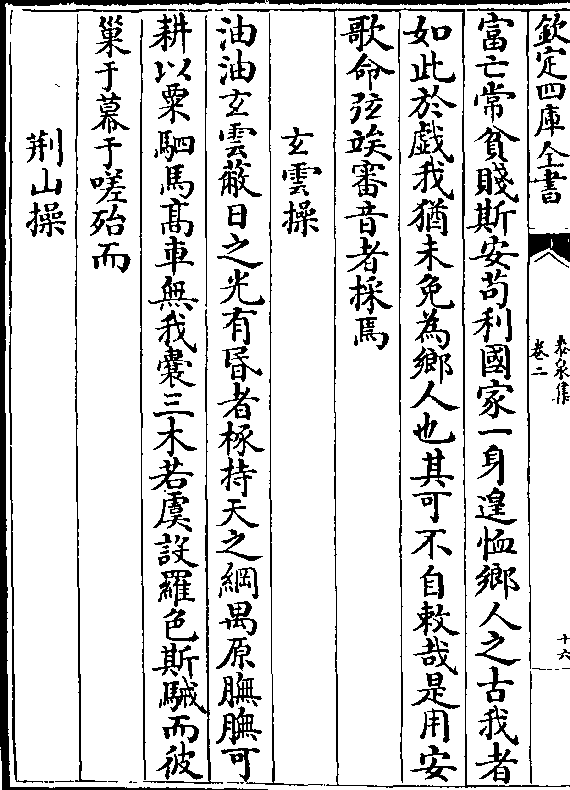 欽定四庫全書
泰泉集
卷二
十六
富亡常貧賤斯安苟利國家一身遑恤鄉人之古我者
如此於戲我猶未免為鄉人也其可不自敕哉是用安
歌命弦竢審音者採焉
玄雲操
油油玄雲蔽日之光有昏者椓持天之綱禺原膴膴可
耕以粟駟馬髙車無我囊三木若虞設羅色斯駴而彼
巢于幕于嗟殆而
荆山操